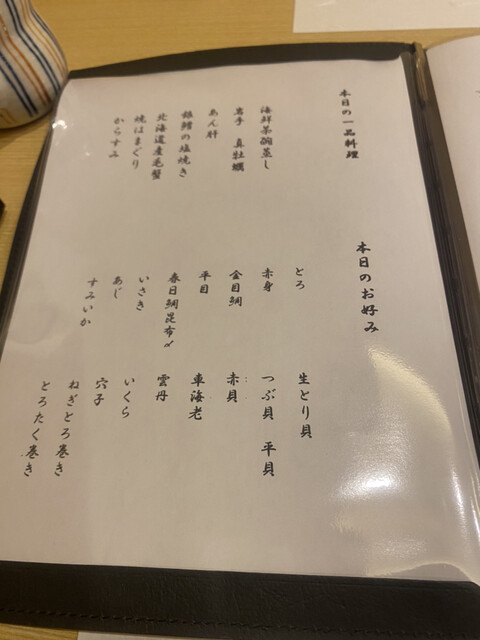 本日の一品料理
海鮮茶碗蒸し
岩手 真牡蠣
あん肝
銀鱈の塩焼き
北海道産毛蟹
焼はまぐり
からすみ
本日のお好み
とろ
赤身
金目鯛
平目
春日鯛昆布〆
いさき
あじ
すみいか
生とり貝
つぶ貝 平貝
赤貝
車海老
雲丹
いくら
穴子
ねぎとろ巻き
とろたく巻き